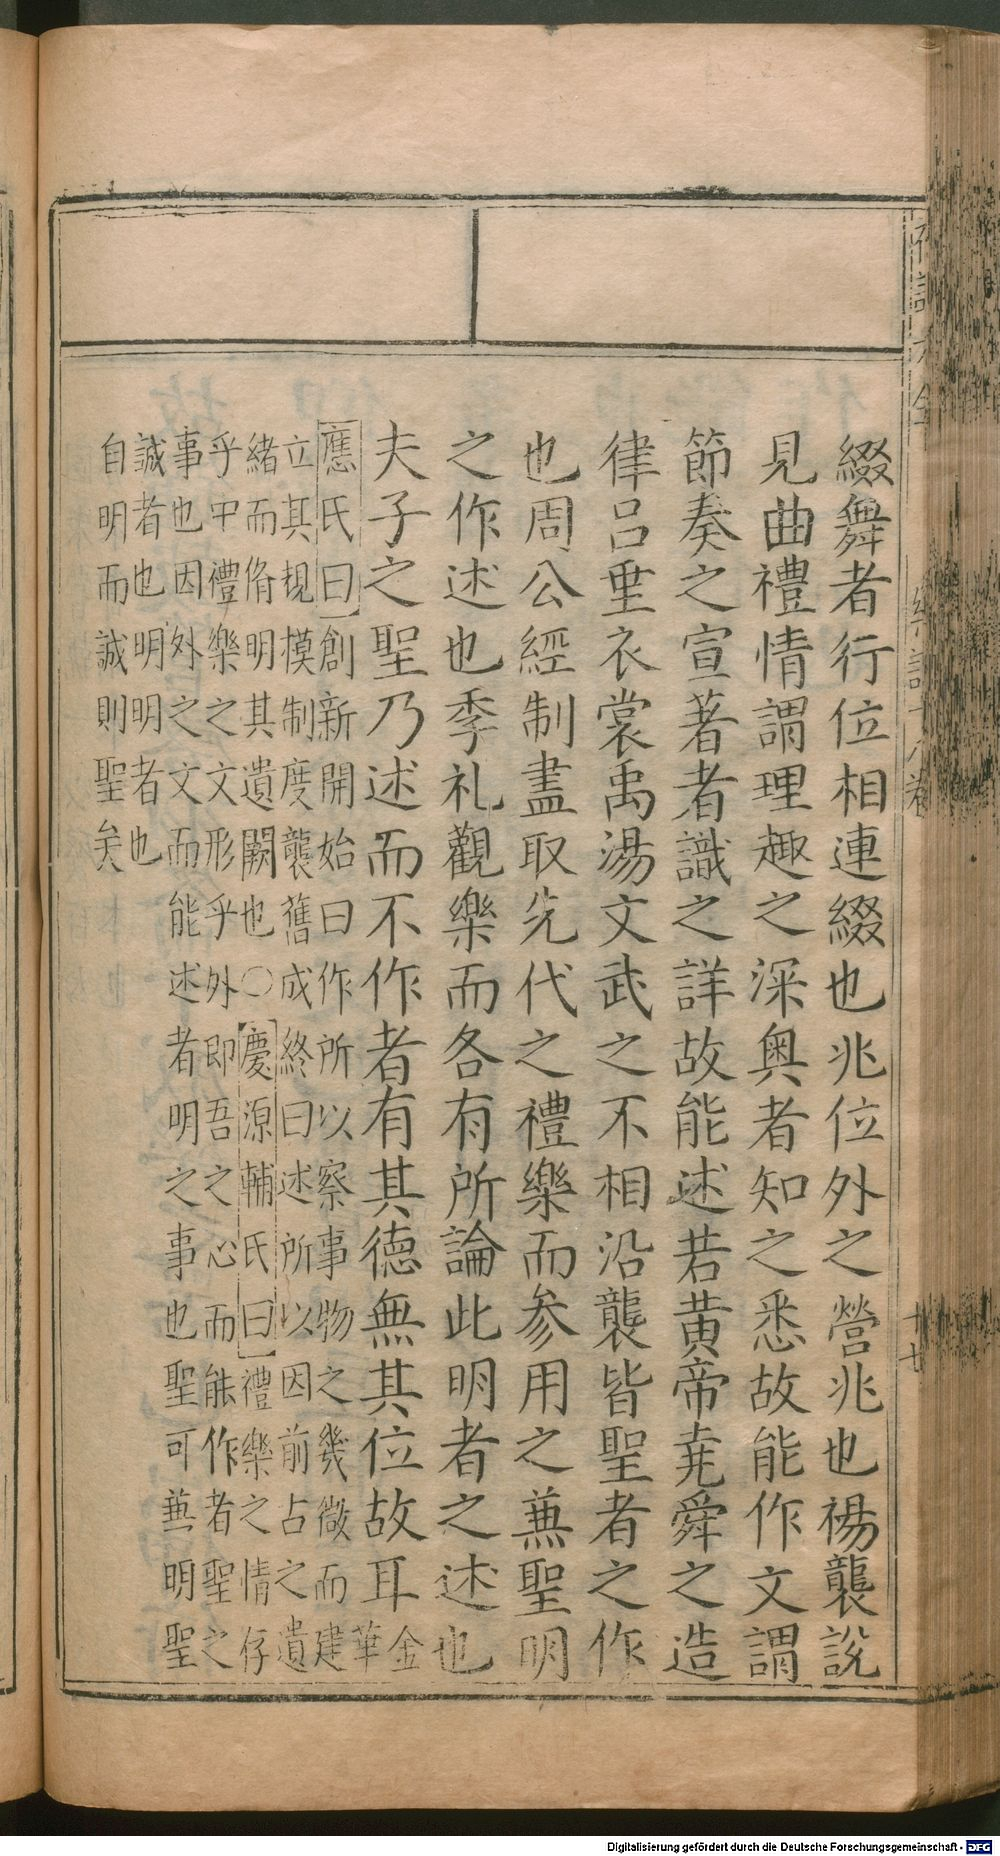 綴舞者行位相連綴也兆位外之營兆也裼襲說
見曲禮情謂理趣之深奥者知之悉故能作文謂
節奏之宣著者識之詳故能述若黄帝堯舜之造
律呂垂衣裳禹湯文武之不相沿襲皆聖者之作
也周公經制盡取先代之禮樂而参用之兼聖明
之作述也季札觀樂而各有所論此明者之述也
夫子之聖乃述而不作者有其德無其位故耳金華
應氏曰創新開始曰作所以察事物之幾微而建
立其規模制度襲舊成終曰述所以因前占之遺
緒而脩明其遺闕也○慶源輔氏曰禮樂之情存
乎中禮樂之文形乎外即吾之心而能作者聖之
事也因外之文而能述者明之事也聖可兼明聖
誠者也明明者也
自明而誠則聖矣
樂記十八卷
十七
Digitalisierung gefördert durch die Deutsche Forschungsgemeinschaft - DFG